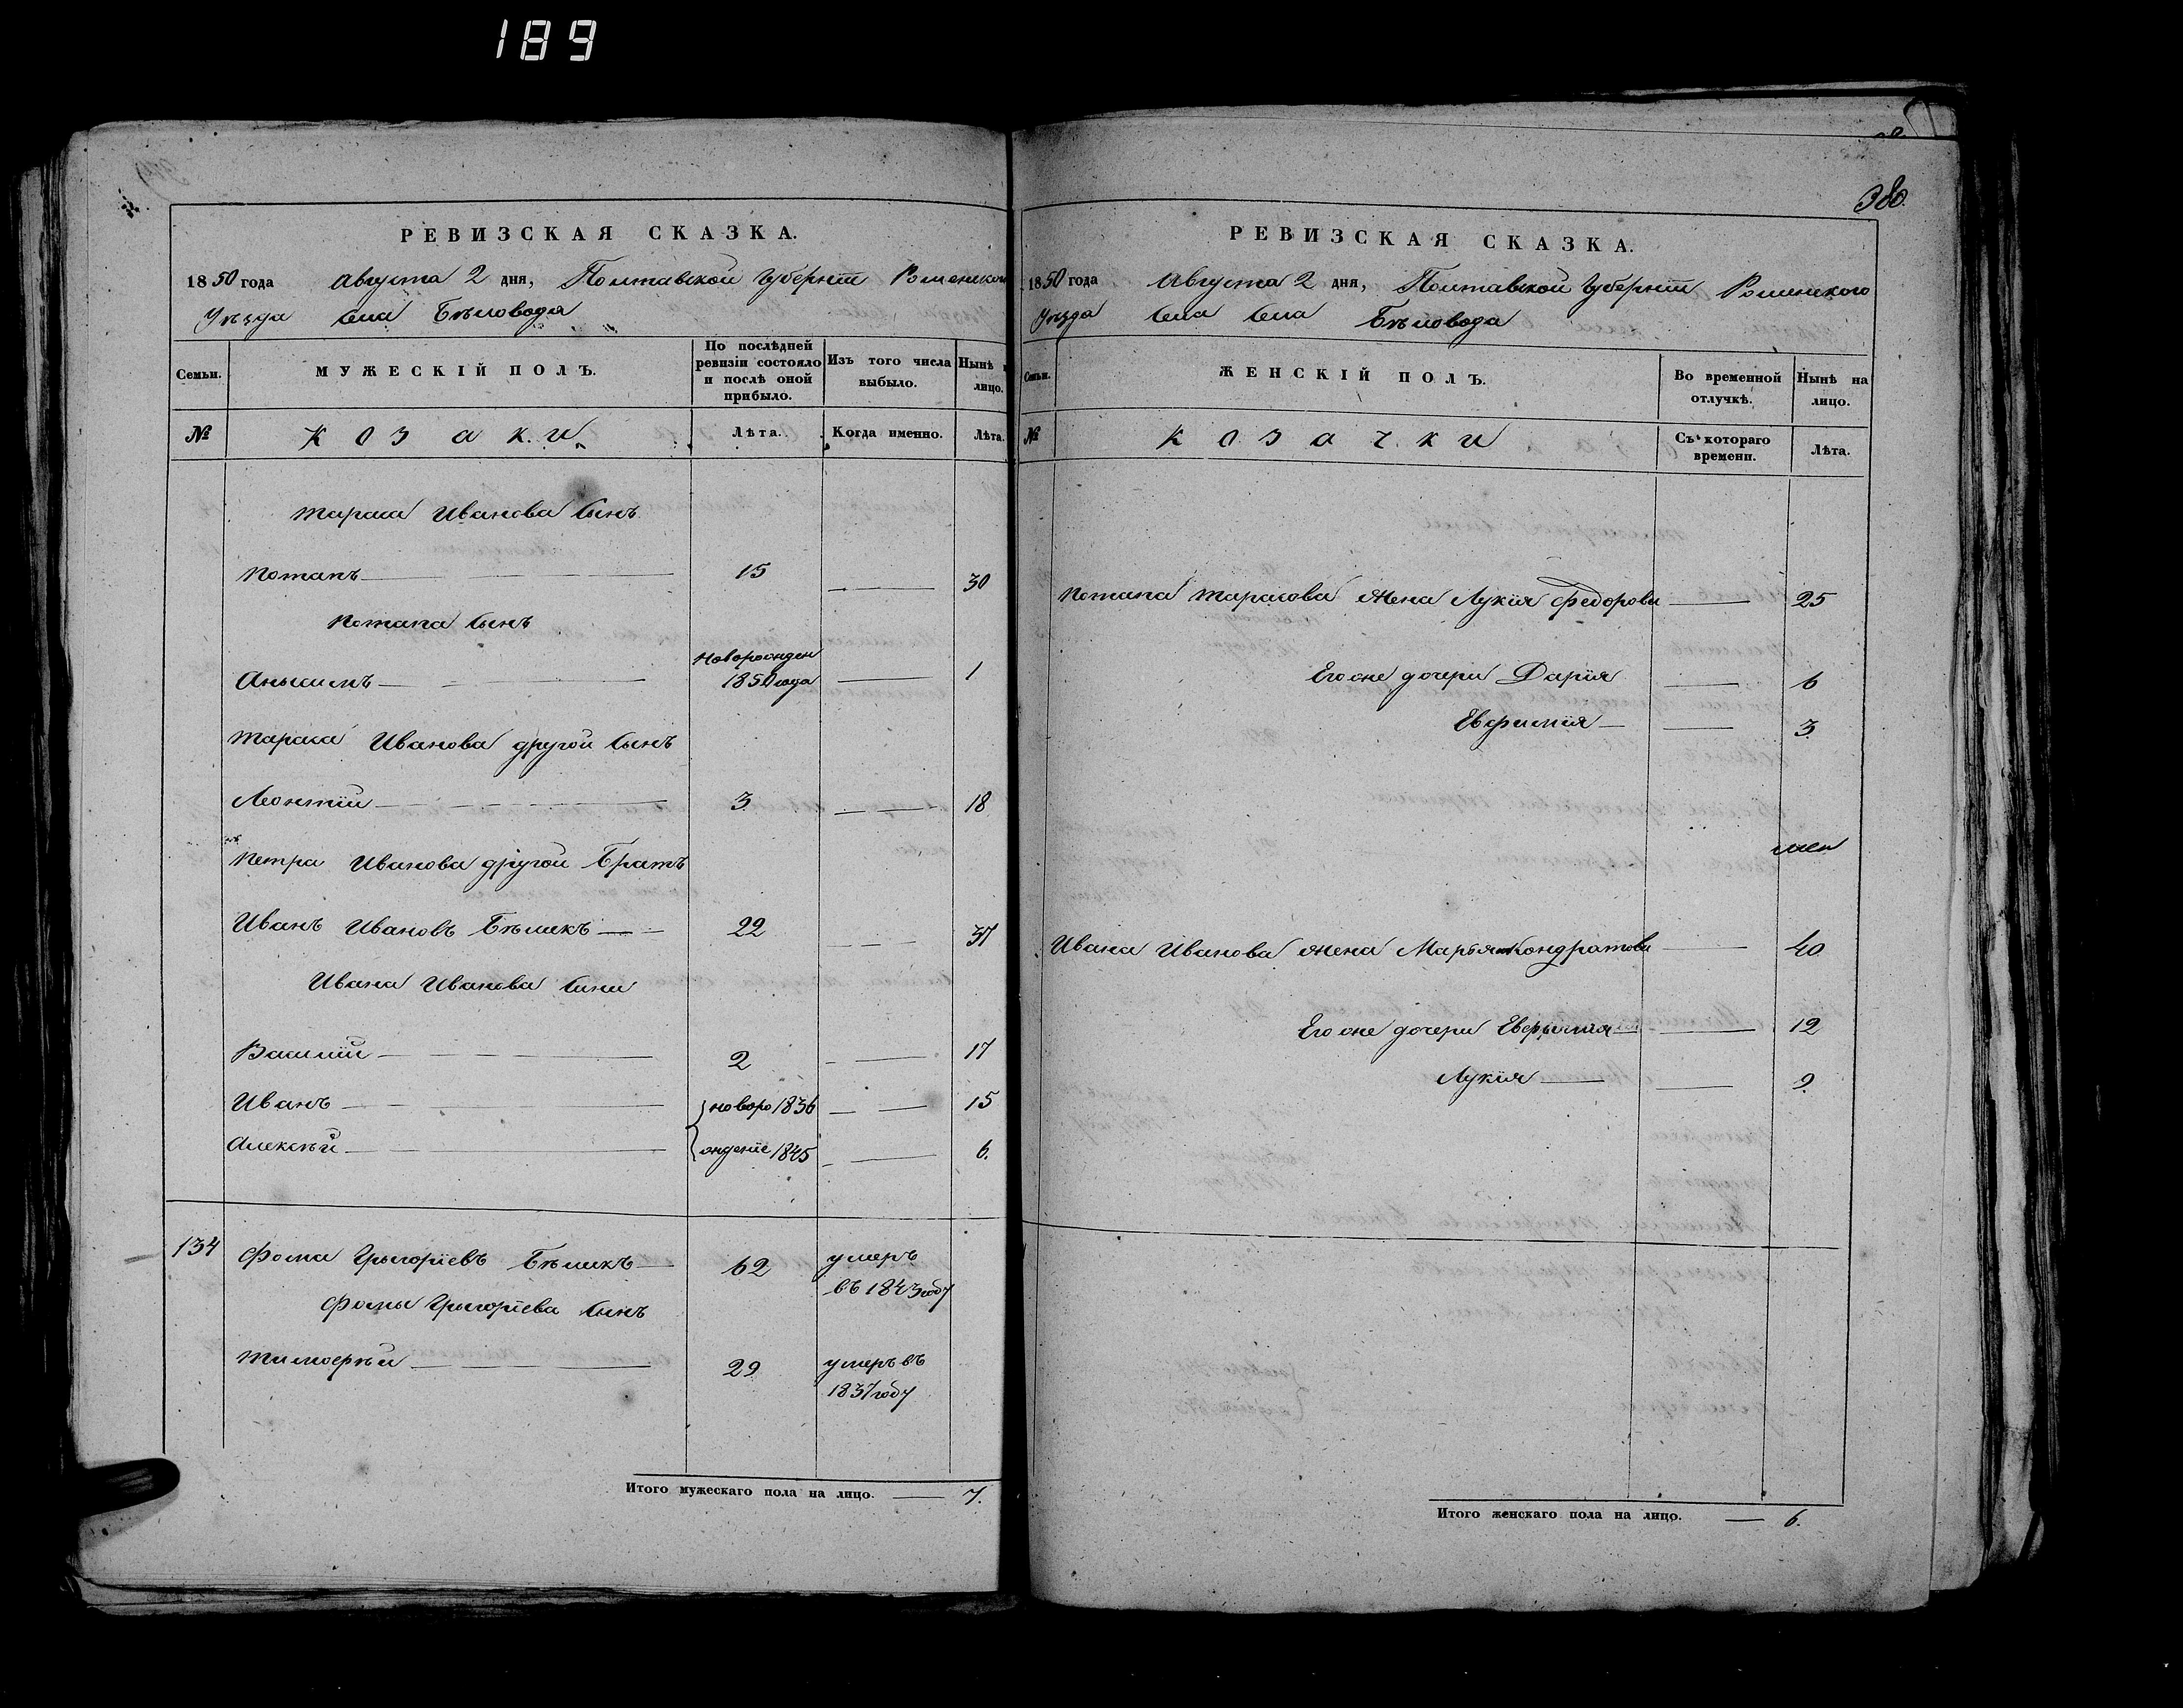 189
РЕВИЗСКАЯ СКАЗКА.
1850 года Августа 2 дня, Полтавской Губернїи Роменского
Уѣзда Села Бѣловода
Семьи.
МУЖЕСКІЙ ПОЛЪ.
По послѣдней ревизіи состояло и послѣ оной прибыло.
Изъ того числа выбыло.
Нынѣ
лицо.
№
Козаки
Лѣта.
Когда именно.
Лѣта.
Тараса Иванова Сынъ
Потапъ 15 30
Потапа Сынъ
Анисимъ Новорожден 1850 года 1
Тараса Иванова другой Сынъ
Леонтїй 3 18
Петра Иванова другой Братъ
Иванъ Ивановъ Бѣликъ 22 37
Ивана Иванова Сини
Василїй 2 17
Иванъ новоро 1836 15
Алексѣй ждение 1845 6.
134 Фома Григорїевъ Бѣликъ 62 умеръ въ 1843 году
Фомы Григорїева Сынъ
Тимофѣй 29 умеръ въ 1837 году
Итого мужескаго пола на лицо. 7.
380.
РЕВИЗСКАЯ СКАЗКА.
1850 года Августа 2 дня, Полтавской Губернїи Роменского
Уѣзда Села Села Бѣловода
Семьи.
ЖЕНСКІЙ ПОЛЪ.
Во временной отлучкѣ.
Нынѣ на лицо.
№
Козачки
Съ котораго времени.
Лѣта.
Потапа Тарасова жена Лукїя Федорова 25
Его же дочери Дарїя 6
Евфимїя 3
Ивана Иванова жена Марья Кондратова 40
Его же дочери Евфимїя 12
Лукїя 9
Итого женскаго пола на лицо. 6.